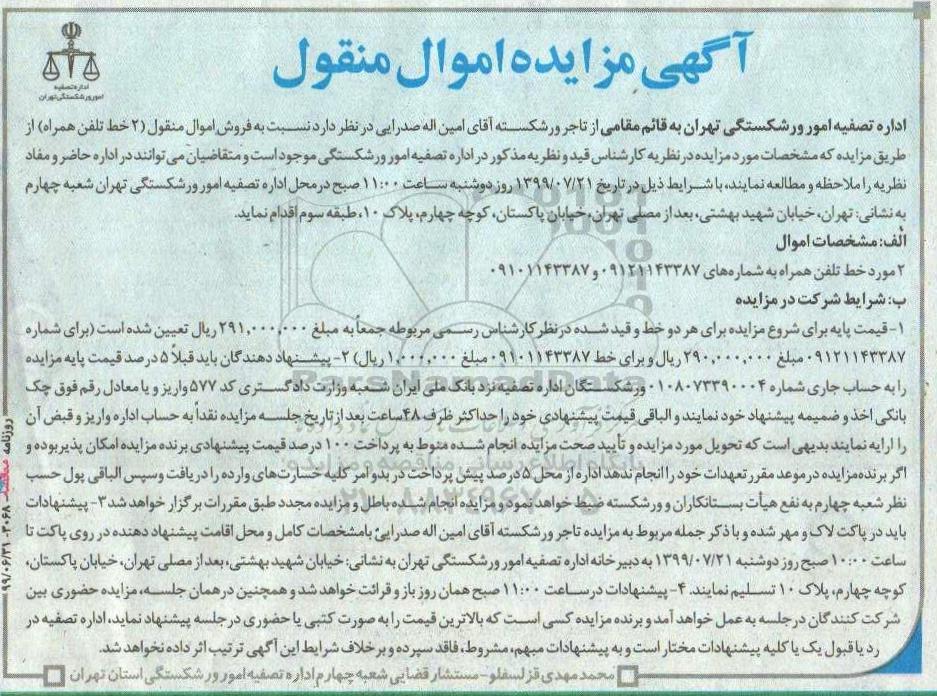 آگهی مزایده اموال منقول
اداره تصفیه
امور ورشکستگی تهران
اداره تصفیه امور ورشکستگی تهران به قائم مقامی از تاجر ورشکسته آقای امین اله صدرایی در نظر دارد نسبت به فروش اموال منقول (۲ خط تلفن همراه) از
طریق مزایده که مشخصات مورد مزایده در نظریه کارشناس قید و نظریه مذکور در اداره تصفیه امور ورشکستگی موجود است و متقاضیان می توانند در اداره حاضر و مفاد
نظریه را ملاحظه و مطالعه نمایند، با شرایط ذیل در تاریخ ۱۳۹۹/۰۷/۲۱ روز دوشنبه ساعت ۱۱:۰۰ صبح در محل اداره تصفیه امور ورشکستگی تهران شعبه چهارم
به نشانی: تهران، خیابان شهید بهشتی، بعد از مصلی تهران، خیابان پاکستان، کوچه چهارم، پلاک ۱۰، طبقه سوم اقدام نماید.
الف: مشخصات اموال
۲ مورد خط تلفن همراه به شماره‌های ۰۹۱۲۱۱۴۳۳۸۷ و ۰۹۱۰۱۱۴۳۳۸۷
ب: شرایط شرکت در مزایده
۱- قیمت پایه برای شروع مزایده برای هر دو خط و قید شده در نظر کارشناس رسمی مربوطه جمعاً به مبلغ ۲۹۱,۰۰۰,۰۰۰ ریال تعیین شده است (برای شماره
۰۹۱۲۱۱۴۳۳۸۷ مبلغ ۲۹۰,۰۰۰,۰۰۰ ریال و برای خط ۰۹۱۰۱۱۴۳۳۸۷ مبلغ ۱,۰۰۰,۰۰۰ ریال) ۲- پیشنهاد دهندگان باید قبلاً ۵ درصد قیمت پایه مزایده
را به حساب جاری شماره ۰۱۰۸۰۷۳۳۹۰۰۰۴ ورشکستگان اداره تصفیه نزد بانک ملی ایران شعبه وزارت دادگستری کد ۵۷۷ واریز و یا معادل رقم فوق چک
بانکی اخذ و ضمیمه پیشنهاد خود نمایند و الباقی قیمت پیشنهادی خود را حداکثر ظرف ۴۸ ساعت بعد از تاریخ جلسه مزایده نقداً به حساب اداره واریز و قبض آن
را ارایه نمایند بدیهی است که تحویل مورد مزایده و تأیید صحت مزایده انجام شده منوط به پرداخت ۱۰۰ درصد قیمت پیشنهادی برنده مزایده امکان پذیر بوده و
اگر برنده مزایده در موعد مقرر تعهدات خود را انجام ندهد اداره از محل ۵ درصد پیش پرداخت در بدو امر کلیه خسارت‌های وارده را دریافت و سپس الباقی پول حسب
نظر شعبه چهارم به نفع هیأت بستانکاران و ورشکسته ضبط خواهد نمود و مزایده انجام شده باطل و مزایده مجدد طبق مقررات برگزار خواهد شد ۳- پیشنهادات
باید در پاکت لاک و مهر شده و با ذکر جمله مربوط به مزایده تاجر ورشکسته آقای امین اله صدرایی بامشخصات کامل و محل اقامت پیشنهاد دهنده در روی پاکت تا
ساعت ۱۰:۰۰ صبح روز دوشنبه ۱۳۹۹/۰۷/۲۱ به دبیرخانه اداره تصفیه امور ورشکستگی تهران به نشانی: خیابان شهید بهشتی، بعد از مصلی تهران، خیابان پاکستان،
کوچه چهارم، پلاک ۱۰ تسلیم نمایند. ۴- پیشنهادات در ساعت ۱۱:۰۰ صبح همان روز باز و قرائت خواهد شد و همچنین در همان جلسه، مزایده حضوری بین
شرکت کنندگان در جلسه به عمل خواهد آمد و برنده مزایده کسی است که بالاترین قیمت را به صورت کتبی یا حضوری در جلسه پیشنهاد نماید، اداره تصفیه در
رد یا قبول یک یا کلیه پیشنهادات مختار است و به پیشنهادات مبهم، مشروط، فاقد سپرده و برخلاف شرایط این آگهی ترتیب اثر داده نخواهد شد.
محمد مهدی قزلسفلو - مستشار قضایی شعبه چهارم اداره تصفیه امور ورشکستگی استان تهران
روزنامه ۳۰۶۸ - ۹۹/۰۶/۳۱
ParsNamadData